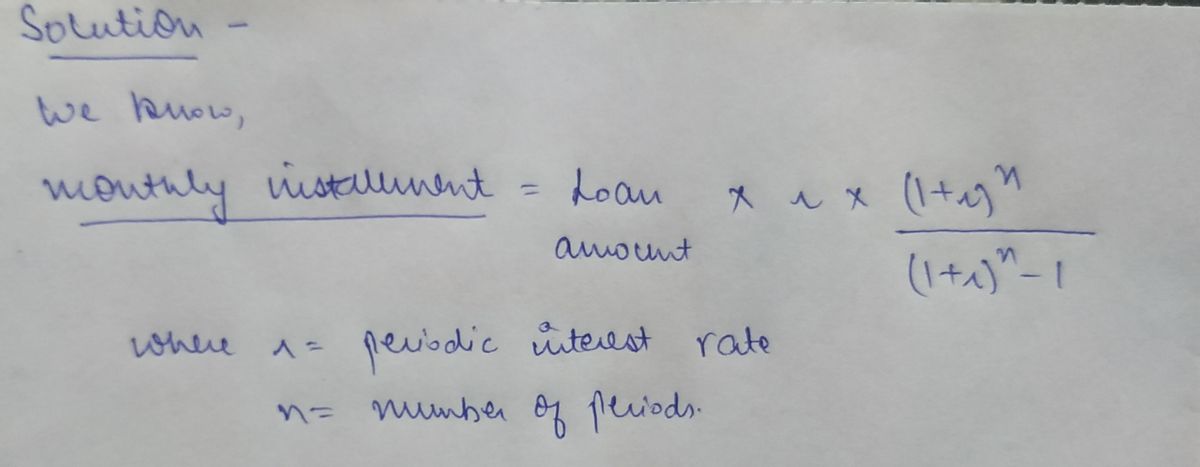 Solution -
We know,
monthly installment = Loan amount × r × (1+r)^n / (1+r)^n - 1
where r = periodic interest rate
n = number of periods.